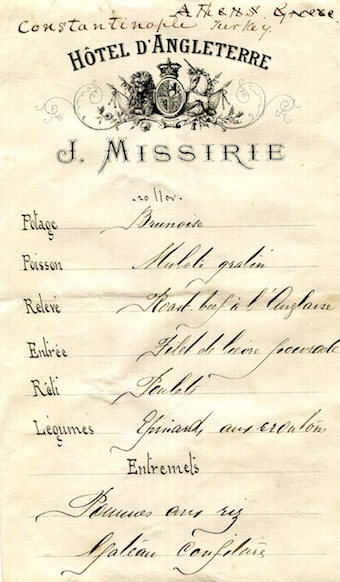 ATHENS Greece.
Constantinople Turkey.
HÔTEL D'ANGLETERRE
J. MISSIRIE
20 Nov.
Potage Brunoise
Poisson Mulets gratin
Relevé Roast-beef à l'Anglaise
Entrée Filet de lièvre poivrade
Rôti Poulets
Légumes Epinards aux croutons
Entremets
Pommes aux riz
Gateau Confiture